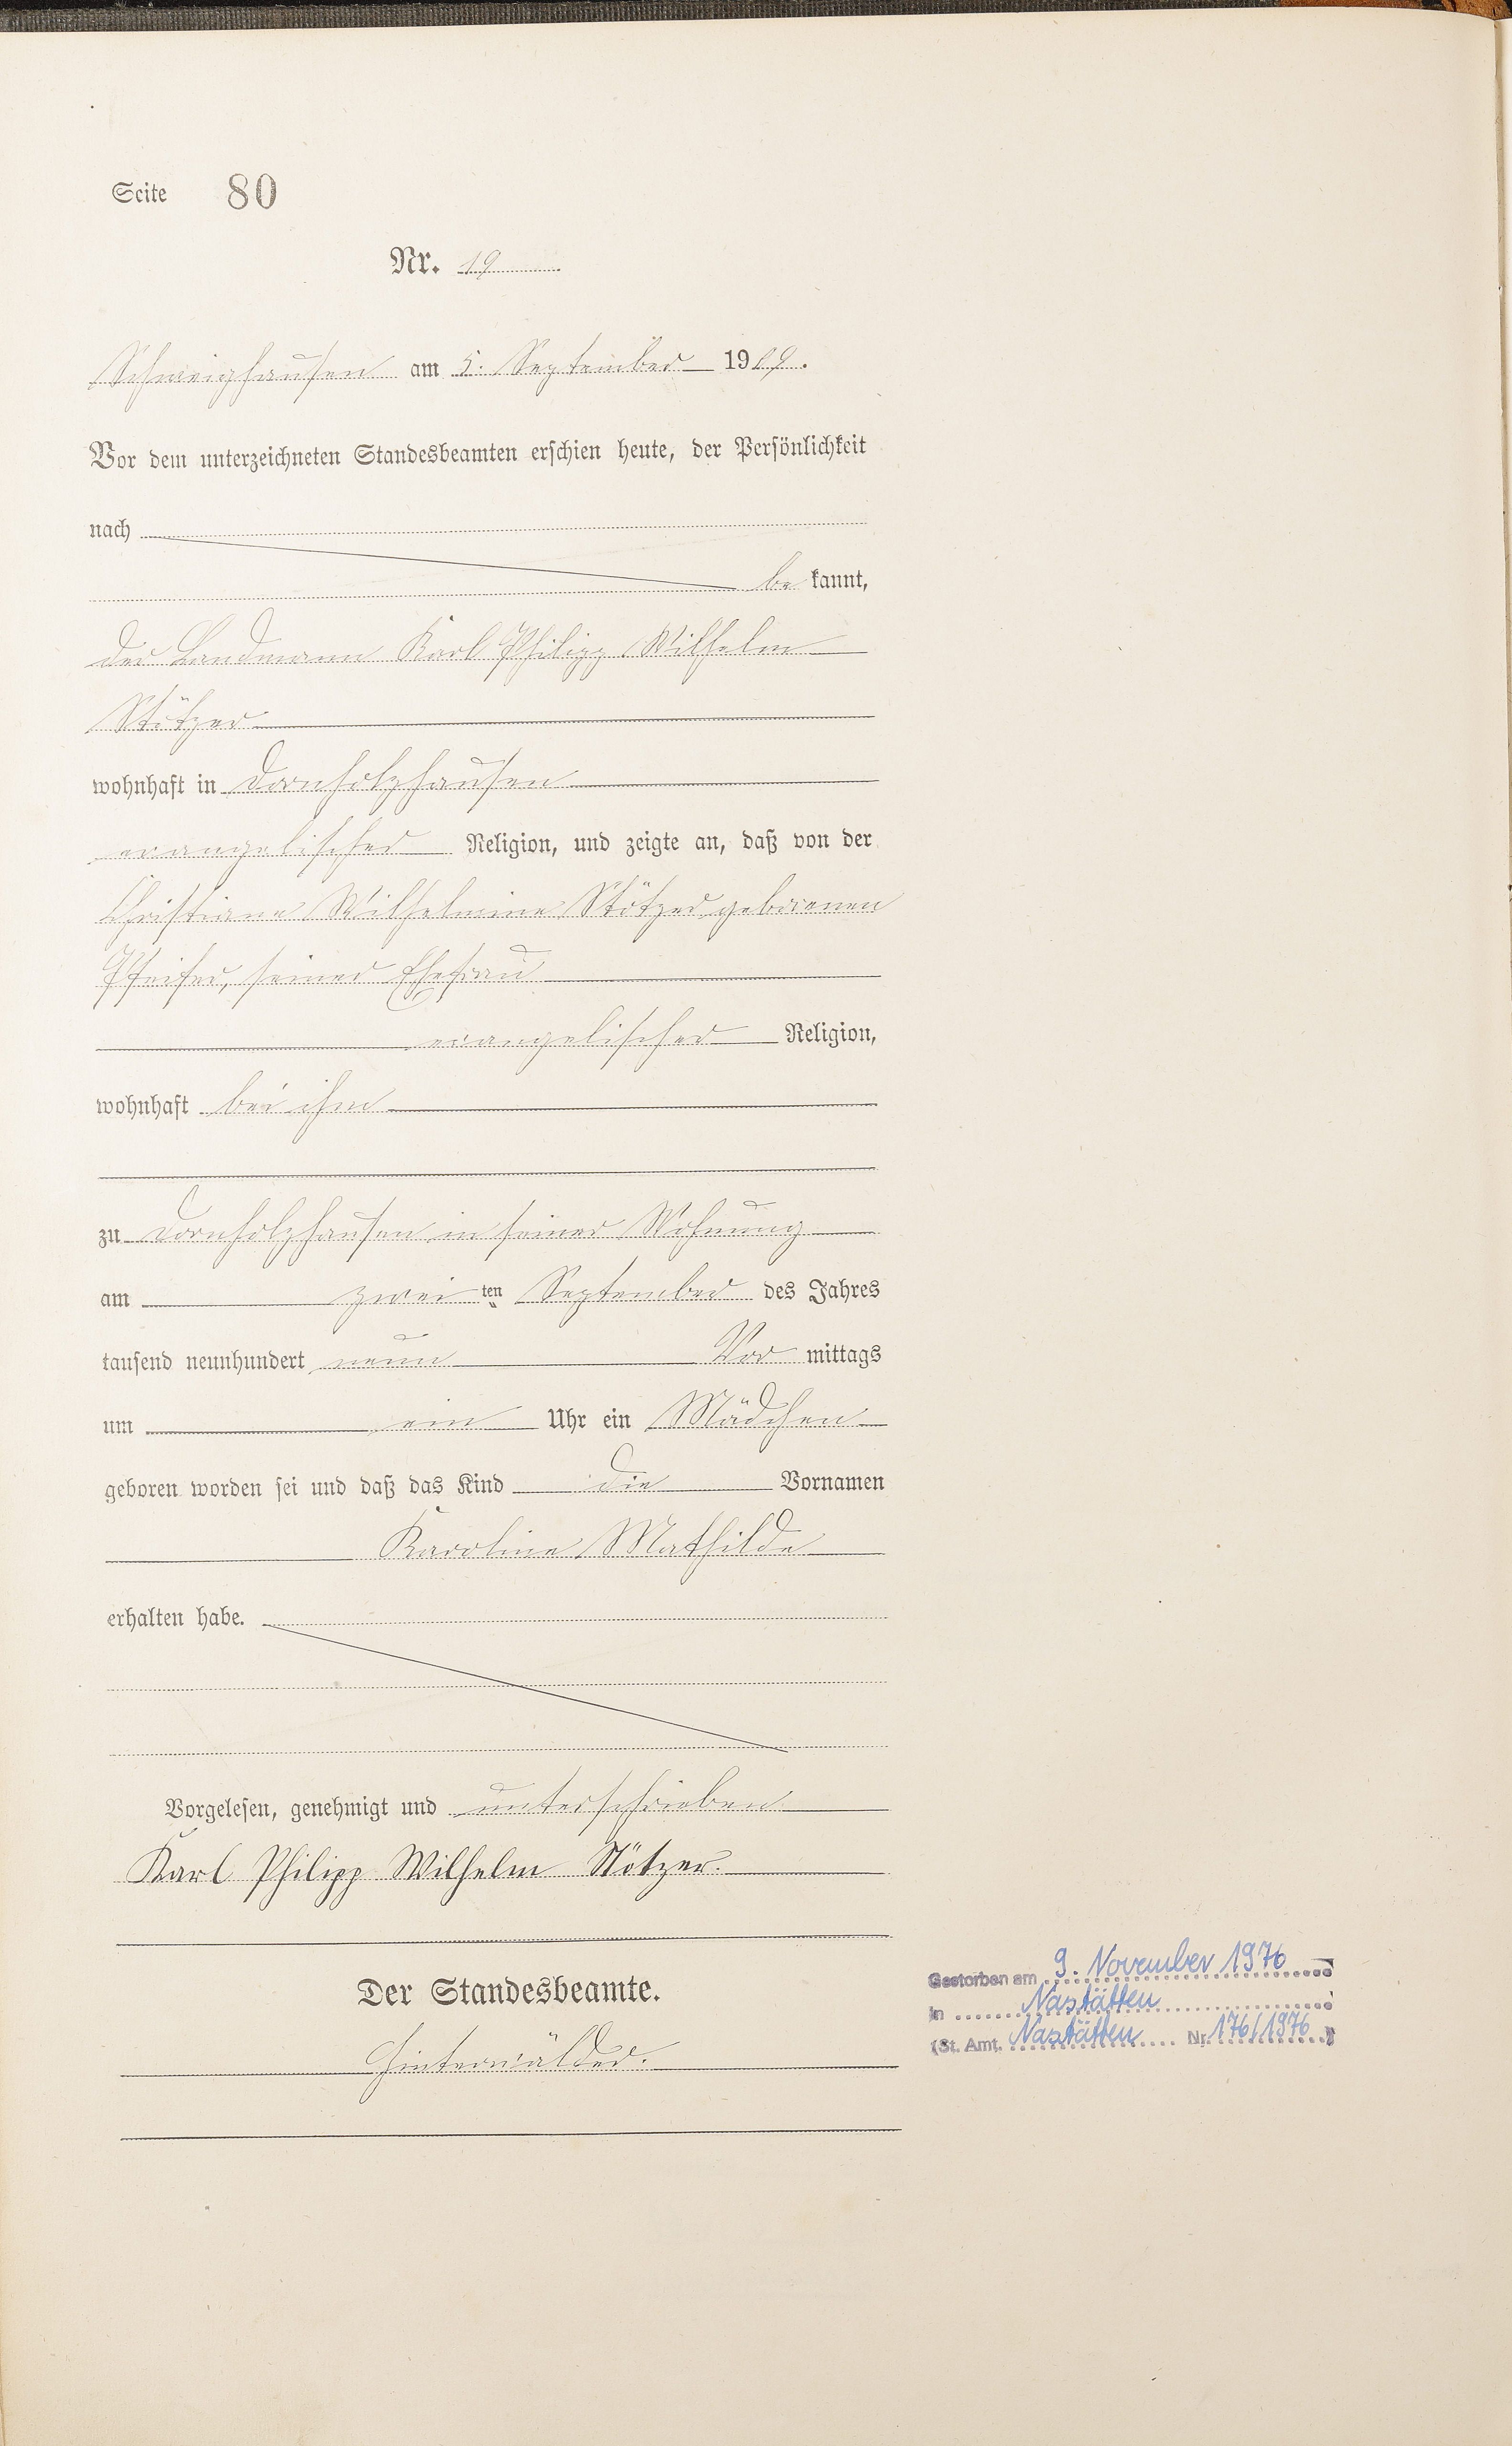 Seite 80
Nr. 19
Schweighausen am 5. September 1909.
Vor dem unterzeichneten Standesbeamten erschien heute, der Persönlichkeit
nach
be kannt,
der Landmann Karl Philipp Wilhelm
Stötzer
wohnhaft in Dornholzhausen
evangelischer Religion, und zeigte an, daß von der
Christiane Wilhelmine Stötzer geborenen
Pfeifer, seiner Ehefrau
evangelischer Religion,
wohnhaft bei ihm
zu Dornholzhausen in seiner Wohnung
am zwei ten September des Jahres
tausend neunhundert neun Vor mittags
um ein Uhr ein Mädchen
geboren worden sei und daß das Kind die Vornamen
Karoline Mathilde
erhalten habe.
Vorgelesen, genehmigt und unterschrieben
Karl Philipp Wilhelm Stötzer.
Der Standesbeamte.
Hinterwälder.
Gestorben am 9. November 1976
in Nastätten
(St. Amt. Nastätten Nr. 176/1976)